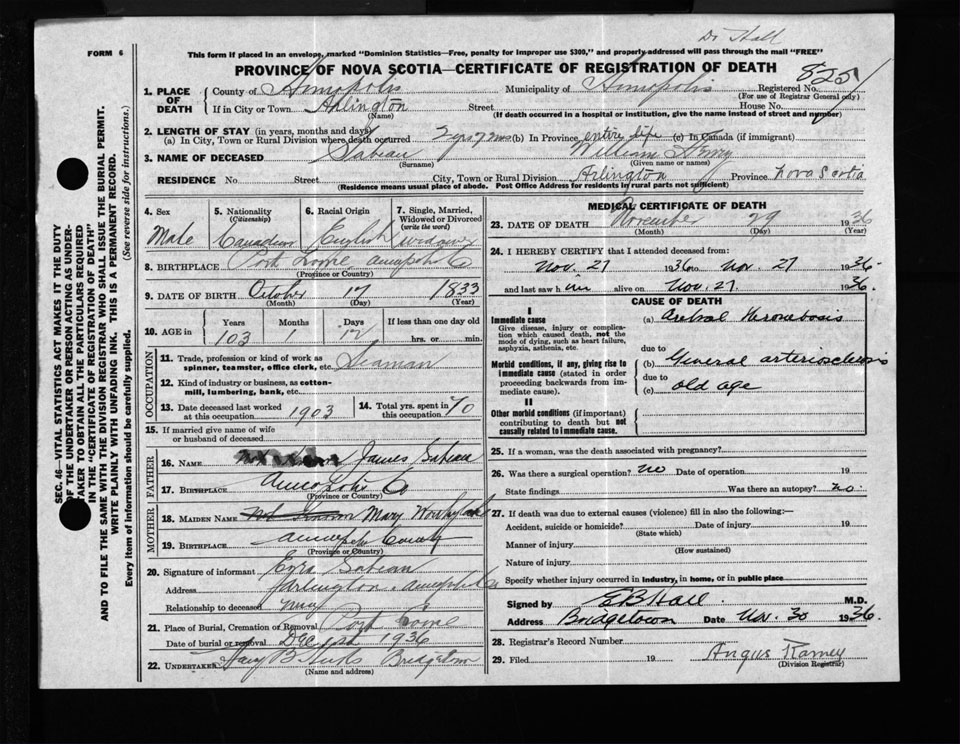 Dr Hall
FORM 6
This form if placed in an envelope, marked "Dominion Statistics—Free, penalty for improper use $300," and properly addressed will pass through the mail "FREE"
PROVINCE OF NOVA SCOTIA—CERTIFICATE OF REGISTRATION OF DEATH
8251
1. PLACE OF DEATH
County of Annapolis Municipality of Annapolis Registered No.
(For use of Registrar General only)
If in City or Town Arlington Street House No.
(Name) (If death occurred in a hospital or institution, give the name instead of street and number)
2. LENGTH OF STAY (in years, months and days)
(a) In City, Town or Rural Division where death occurred 2 yrs 7 mos (b) In Province entire life (c) In Canada (if immigrant)
3. NAME OF DECEASED Sabean William Henry
(Surname) (Given name or names)
RESIDENCE No. Street City, Town or Rural Division Arlington Province Nova Scotia
(Residence means usual place of abode. Post Office Address for residents in rural parts not sufficient)
4. Sex Male
5. Nationality (Citizenship) Canadian
6. Racial Origin English
7. Single, Married, Widowed or Divorced (write the word) widower
8. BIRTHPLACE Port Lorne Annapolis Co
(Province or Country)
9. DATE OF BIRTH October 17 1833
(Month) (Day) (Year)
10. AGE in Years 103 Months Days 12 If less than one day old hrs. or min.
OCCUPATION
11. Trade, profession or kind of work as spinner, teamster, office clerk, etc. Seaman
12. Kind of industry or business, as cotton-mill, lumbering, bank, etc.
13. Date deceased last worked at this occupation 1903
14. Total yrs. spent in this occupation 70
15. If married give name of wife or husband of deceased
FATHER
16. Name James Sabean
17. Birthplace Annapolis Co
(Province or Country)
MOTHER
18. Maiden Name Not Known Mary
19. Birthplace Annapolis County
(Province or Country)
20. Signature of informant Ezra Sabean
Address Arlington Annapolis Co
Relationship to deceased
21. Place of Burial, Cremation or Removal Port Lorne
Date of burial or removal Dec 1st 1936
22. UNDERTAKER Bridgetown
(Name and address)
MEDICAL CERTIFICATE OF DEATH
23. DATE OF DEATH November 29 1936
(Month) (Day) (Year)
24. I HEREBY CERTIFY that I attended deceased from:
Nov. 27 1936 to Nov. 27 1936
and last saw him alive on Nov. 27 1936.
CAUSE OF DEATH
I
Immediate cause
Give disease, injury or complication which caused death, not the mode of dying, such as heart failure, asphyxia, asthenia, etc.
(a) Cerebral Thrombosis
due to
Morbid conditions, if any, giving rise to immediate cause (stated in order proceeding backwards from immediate cause).
(b) General arteriosclerosis
due to
(c) old age
II
Other morbid conditions (if important) contributing to death but not causally related to immediate cause.
25. If a woman, was the death associated with pregnancy?
26. Was there a surgical operation? no Date of operation 19
State findings Was there an autopsy? no.
27. If death was due to external causes (violence) fill in also the following:—
Accident, suicide or homicide? Date of injury 19
(State which)
Manner of injury
(How sustained)
Nature of injury
Specify whether injury occurred in industry, in home, or in public place
Signed by E B Hall M.D.
Address Bridgetown Date Nov. 30 1936
28. Registrar's Record Number
29. Filed 19 Angus Ramey
(Division Registrar)
SEC. 46—VITAL STATISTICS ACT MAKES IT THE DUTY
OF THE UNDERTAKER OR PERSON ACTING AS UNDER-
TAKER TO OBTAIN ALL THE PARTICULARS REQUIRED
IN THE "CERTIFICATE OF REGISTRATION OF DEATH"
AND TO FILE THE SAME WITH THE DIVISION REGISTRAR WHO SHALL ISSUE THE BURIAL PERMIT.
WRITE PLAINLY WITH UNFADING INK. THIS IS A PERMANENT RECORD.
Every item of information should be carefully supplied. (See reverse side for instructions.)